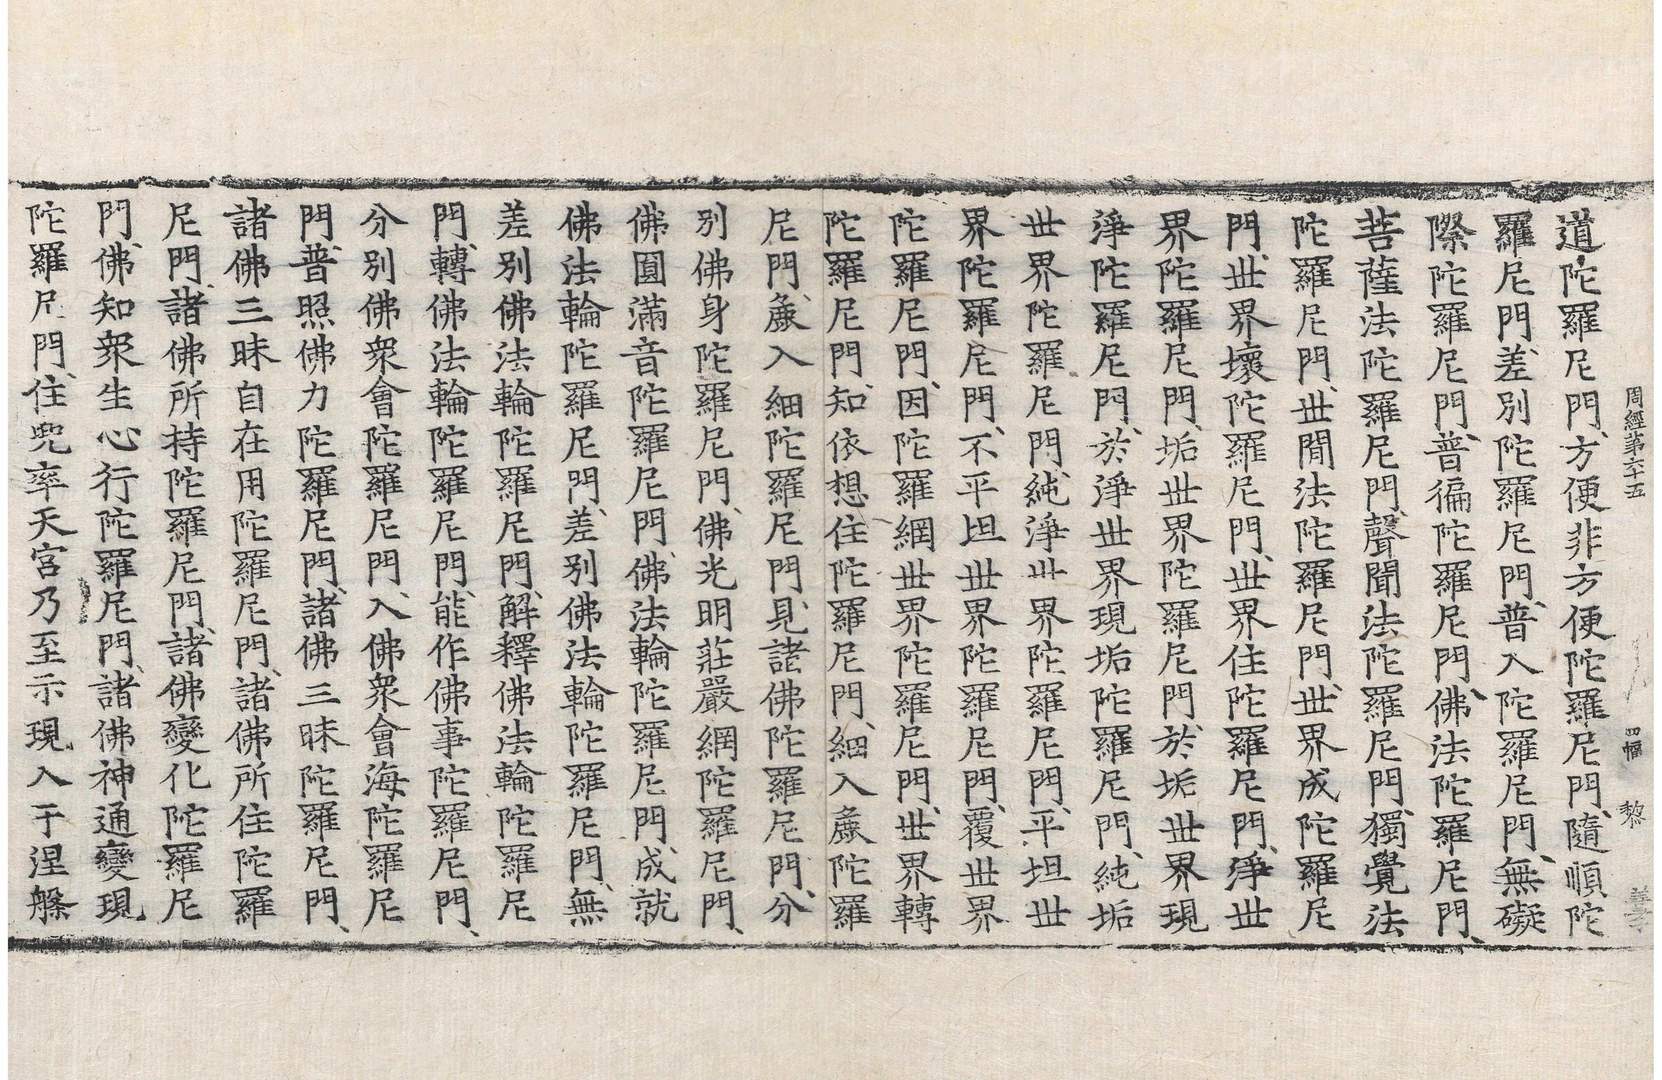 周經第六十五 四幅 黎
道陀羅尼門方便非方便陀羅尼門隨順陀
羅尼門差別陀羅尼門普入陀羅尼門無礙
際陀羅尼門普徧陀羅尼門佛法陀羅尼門
菩薩法陀羅尼門聲聞法陀羅尼門獨覺法
陀羅尼門世間法陀羅尼門世界成陀羅尼
門世界壞陀羅尼門世界住陀羅尼門淨世
界陀羅尼門垢世界陀羅尼門於垢世界現
淨陀羅尼門於淨世界現垢陀羅尼門純垢
世界陀羅尼門純淨世界陀羅尼門平坦世
界陀羅尼門不平坦世界陀羅尼門覆世界
陀羅尼門因陀羅網世界陀羅尼門世界轉
陀羅尼門知依想住陀羅尼門細入麁陀羅
尼門麁入細陀羅尼門見諸佛陀羅尼門分
別佛身陀羅尼門佛光明莊嚴網陀羅尼門
佛圓滿音陀羅尼門佛法輪陀羅尼門成就
佛法輪陀羅尼門差別佛法輪陀羅尼門無
差別佛法輪陀羅尼門解釋佛法輪陀羅尼
門轉佛法輪陀羅尼門能作佛事陀羅尼門
分別佛眾會陀羅尼門入佛眾會海陀羅尼
門普照佛力陀羅尼門諸佛三昧陀羅尼門
諸佛三昧自在用陀羅尼門諸佛所住陀羅
尼門諸佛所持陀羅尼門諸佛變化陀羅尼
門佛知眾生心行陀羅尼門諸佛神通變現
陀羅尼門住兜率天宮乃至示現入于涅槃